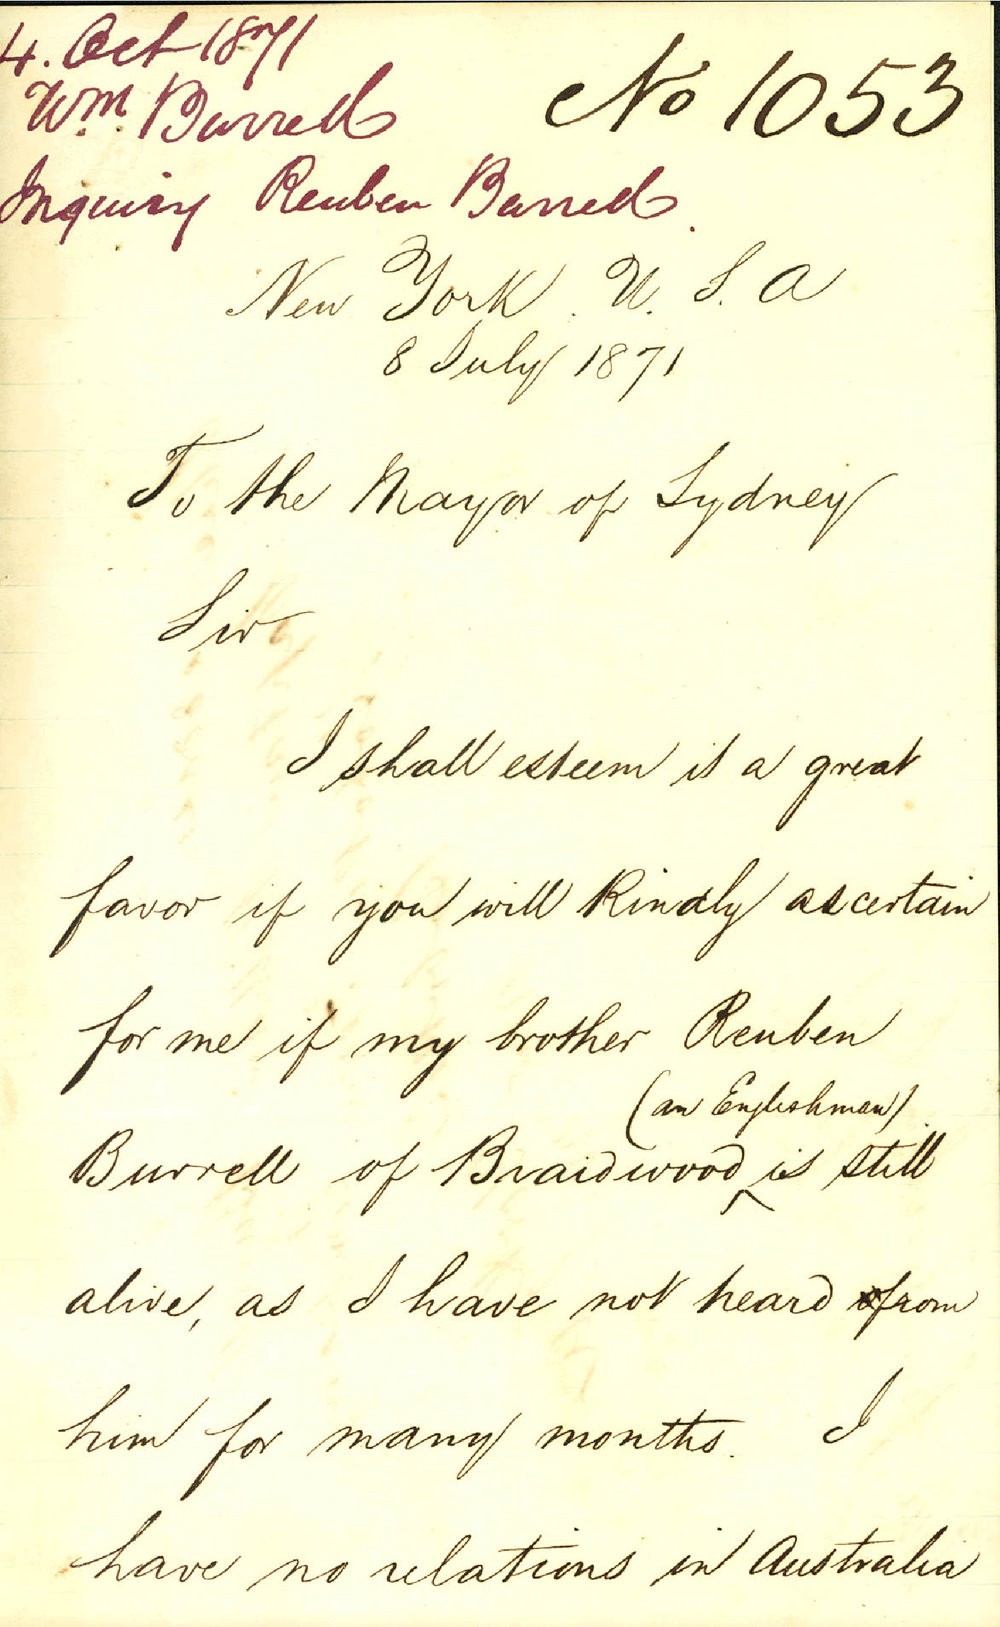 4. Oct 1871
Wm. Burrell
No 1053
Inquiry Reuben Burrell.
New York. U. S. A
8 July 1871
To the Mayor of Sydney
Sir
I shall esteem it a great
favor if you will kindly ascertain
for me if my brother Reuben
(an Englishman)
Burrell of Braidwood is still
alive, as I have not heard from
him for many months. I
have no relations in Australia